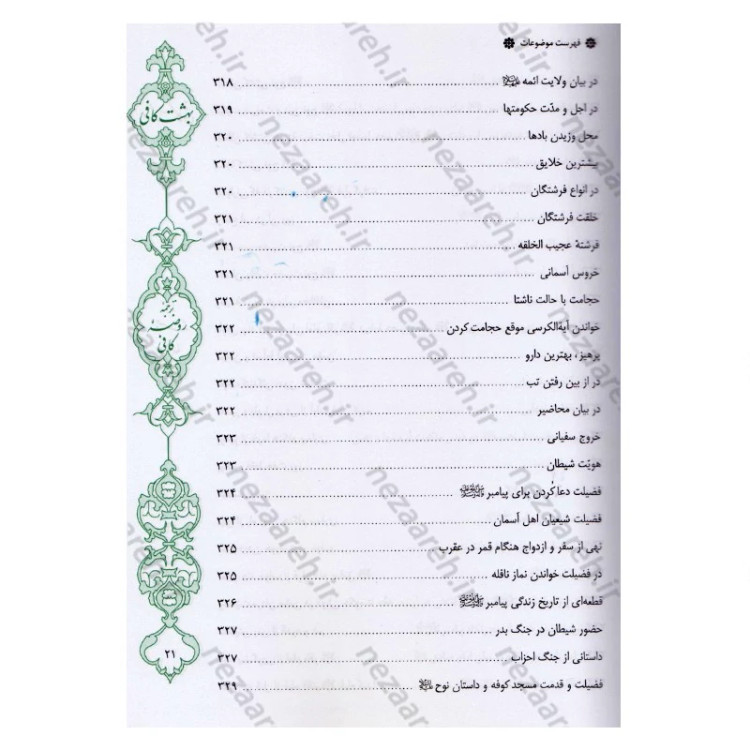 فهرست موضوعات
در بیان ولایت ائمه ................ ۳۱۸
در اجل و مدّت حکومتها ................ ۳۱۹
محل وزیدن بادها ................ ۳۲۰
بیشترین خلایق ................ ۳۲۰
در انواع فرشتگان ................ ۳۲۰
خلقت فرشتگان ................ ۳۲۱
فرشتهٔ عجیب الخلقه ................ ۳۲۱
خروس آسمانی ................ ۳۲۱
حجامت با حالت ناشتا ................ ۳۲۱
خواندن آیةالکرسی موقع حجامت کردن ................ ۳۲۲
پرهیز، بهترین دارو ................ ۳۲۲
در از بین رفتن تب ................ ۳۲۲
در بیان محاضیر ................ ۳۲۲
خروج سفیانی ................ ۳۲۳
هویّت شیطان ................ ۳۲۳
فضیلت دعا کُردن برای پیامبر ﷺ ................ ۳۲۴
فضیلت شیعیان اهل آسمان ................ ۳۲۴
نهی از سفر و ازدواج هنگام قمر در عقرب ................ ۳۲۵
در فضیلت خواندن نماز نافله ................ ۳۲۵
قطعه‌ای از تاریخ زندگی پیامبر ﷺ ................ ۳۲۶
حضور شیطان در جنگ بدر ................ ۳۲۷
داستانی از جنگ احزاب ................ ۳۲۷
فضیلت و قدمت مسجد کوفه و داستان نوح ................ ۳۲۹
بهشت کافی
ترجمه
روضه
کافی
۲۱
nezaareh.ir
nezaareh.ir
nezaareh.ir
nezaareh.ir
nezaareh.ir
nezaareh.ir
nezaareh.ir
nezaareh.ir
nezaareh.ir